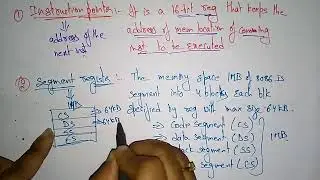 ① Instruction pointer :- It is a 16 bit reg that keeps the
address of mem location of coming
→ address of the inst to be executed
next inst
② Segment register :- The memory space 1MB of 8086 is
segment into 4 blocks each blk
1MB
specified by reg with max size 64KB
CS → 64KB
DS → 64KB
SS
ES
⇒ Code segment (CS)
⇒ data segment (DS)
stack segment (SS)
segment (ES)
1MB